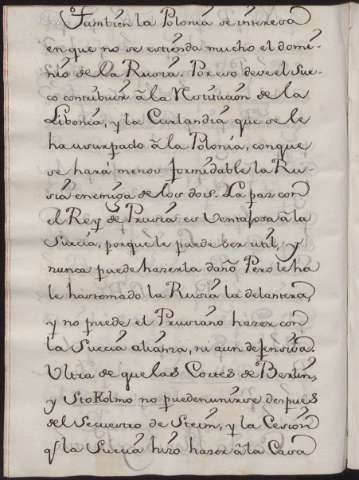 Tambien la Polonia se interesa
en que no se estienda mucho el domi-
nio de la Rusia. Por eso deve el Sue-
co contribuir à la Restitucion de la
Libonia, y la Curlandia que se le
ha usurpado à la Polonia, con que
se hará menos formidable la Ru-
sia enemiga de los dos. La paz con
el Rey de Prusia es Ventajosa à la
Suecia, porque le puede ser util, y
nunca puede hazerla daño. Pero le ha
le ha tomado la Rusia la delantera,
y no puede el Prusiano hazer con
la Suecia alianza, ni aun defensiva.
Ultra de que las Cortes de Berlin,
y Stokolmo no pueden unirse despues
del Secuestro de Stetin, y la Cesion
q̃ la Suecia hizo hazer à la Casa